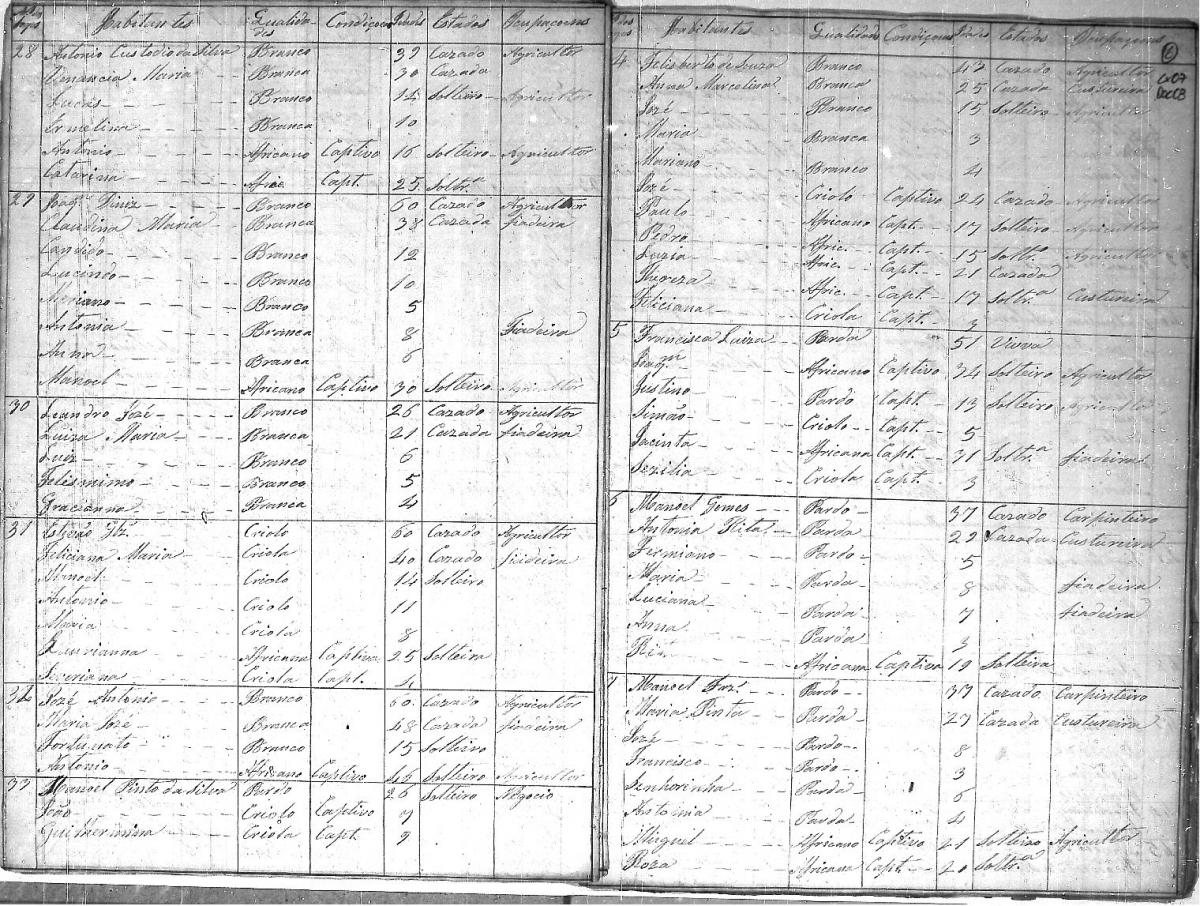 Habitantes Qualidades Condiçoens Idades Estados Ocupaçoens
28 Antonio Custodio da Silva Branco 39 Cazado Agricultor
Venancia Maria Branca 30 Cazada
Lucas Branco 14 Solteiro Agricultor
Ermelina Branca 10
Antonio Africano Captivo 16 Solteiro Agricultor
Catarina Afric Capt. 25 Soltr.ª
29 Joaq.m Branco 60 Cazado Agricultor
Claudina Maria Branca 38 Cazada fiadeira
Candido Branco 12
Lucindo Branco 10
Mariano Branco 5
Antonia Branca 8 Fiadeira
Anna Branca 6
Manoel Africano Captivo 30 Solteiro Agricultor
30 Leandro Jozé Branco 26 Cazado Agricultor
Luiza Maria Branca 21 Cazada fiadeira
Luiz Branco 6
Felismimo Branco 5
Gracianna Branca 4
31 Criolo 60 Cazado Agricultor
Feliciana Maria Criola 40 Cazado fiadeira
Manoel Criolo 14 Solteiro
Antonio Criolo 11
Maria Criola 8
Africana Captiva 25 Solteira
Criola Capt.
Jozé Antonio Branco 60 Cazado Agricultor
Maria Jozé Branca 48 Cazada fiadeira
Fortunato Branco 15 Solteiro
Antonio Africano Captivo 46 Solteiro Agricultor
33 Manoel Pinto da Silva Pardo 26 Solteiro Negocio
João Criolo Captivo 7
Guilhermina Criola Capt. 9
Habitantes Qualidades Condiçoens Idades Estados Ocupaçoens 6
4 Felisberto de Souza Branco 42 Cazado Agricultor
Anna Marcolina Branca 25 Cazada Custureira
Jozé Branco 15 Solteiro Agricultr
Maria Branca 3
Mariano Branco 4
Jozé Criolo Captivo 24 Cazado Agricultor
Paulo Africano Capt. 17 Solteiro Agricultor
Pedro Afric. Capt. 15 Soltr.º Agricultor
Luzia Afric. Capt. 21 Cazada
Thereza Afric. Capt. 17 Soltr.ª Custureira
Feliciana Criola Capt. 3
5 Francisca Luiza Parda 51 Viuva
Joaq.m Africano Captivo 34 Solteiro Agricultor
Justino Pardo Capt. 13 Solteiro Agricultor
Simão Criolo Capt. 5
Jacinta Africana Capt. 31 Soltr.ª fiadeira
Sezilia Criola Capt. 3
Manoel Gomes Pardo 37 Cazado Carpinteiro
Antonia Rita Parda 29 Cazada Custureira
Firmiano Pardo 5
Maria Parda 8 fiadeira
Luciana Parda 7 fiadeira
Anna Parda 3
Rita Africana Captiva 19 Solteira
7 Manoel Jozé Pardo 37 Cazado Carpinteiro
Maria Pinta Parda 27 Cazada Custureira
Jozé Pardo 8
Francisco Pardo 3
Senhorinha Parda 6
Antonia Parda 4
Miguel Africano Captivo 21 Solteiro Agricultor
Roza Africana Capt. 20 Soltr.ª